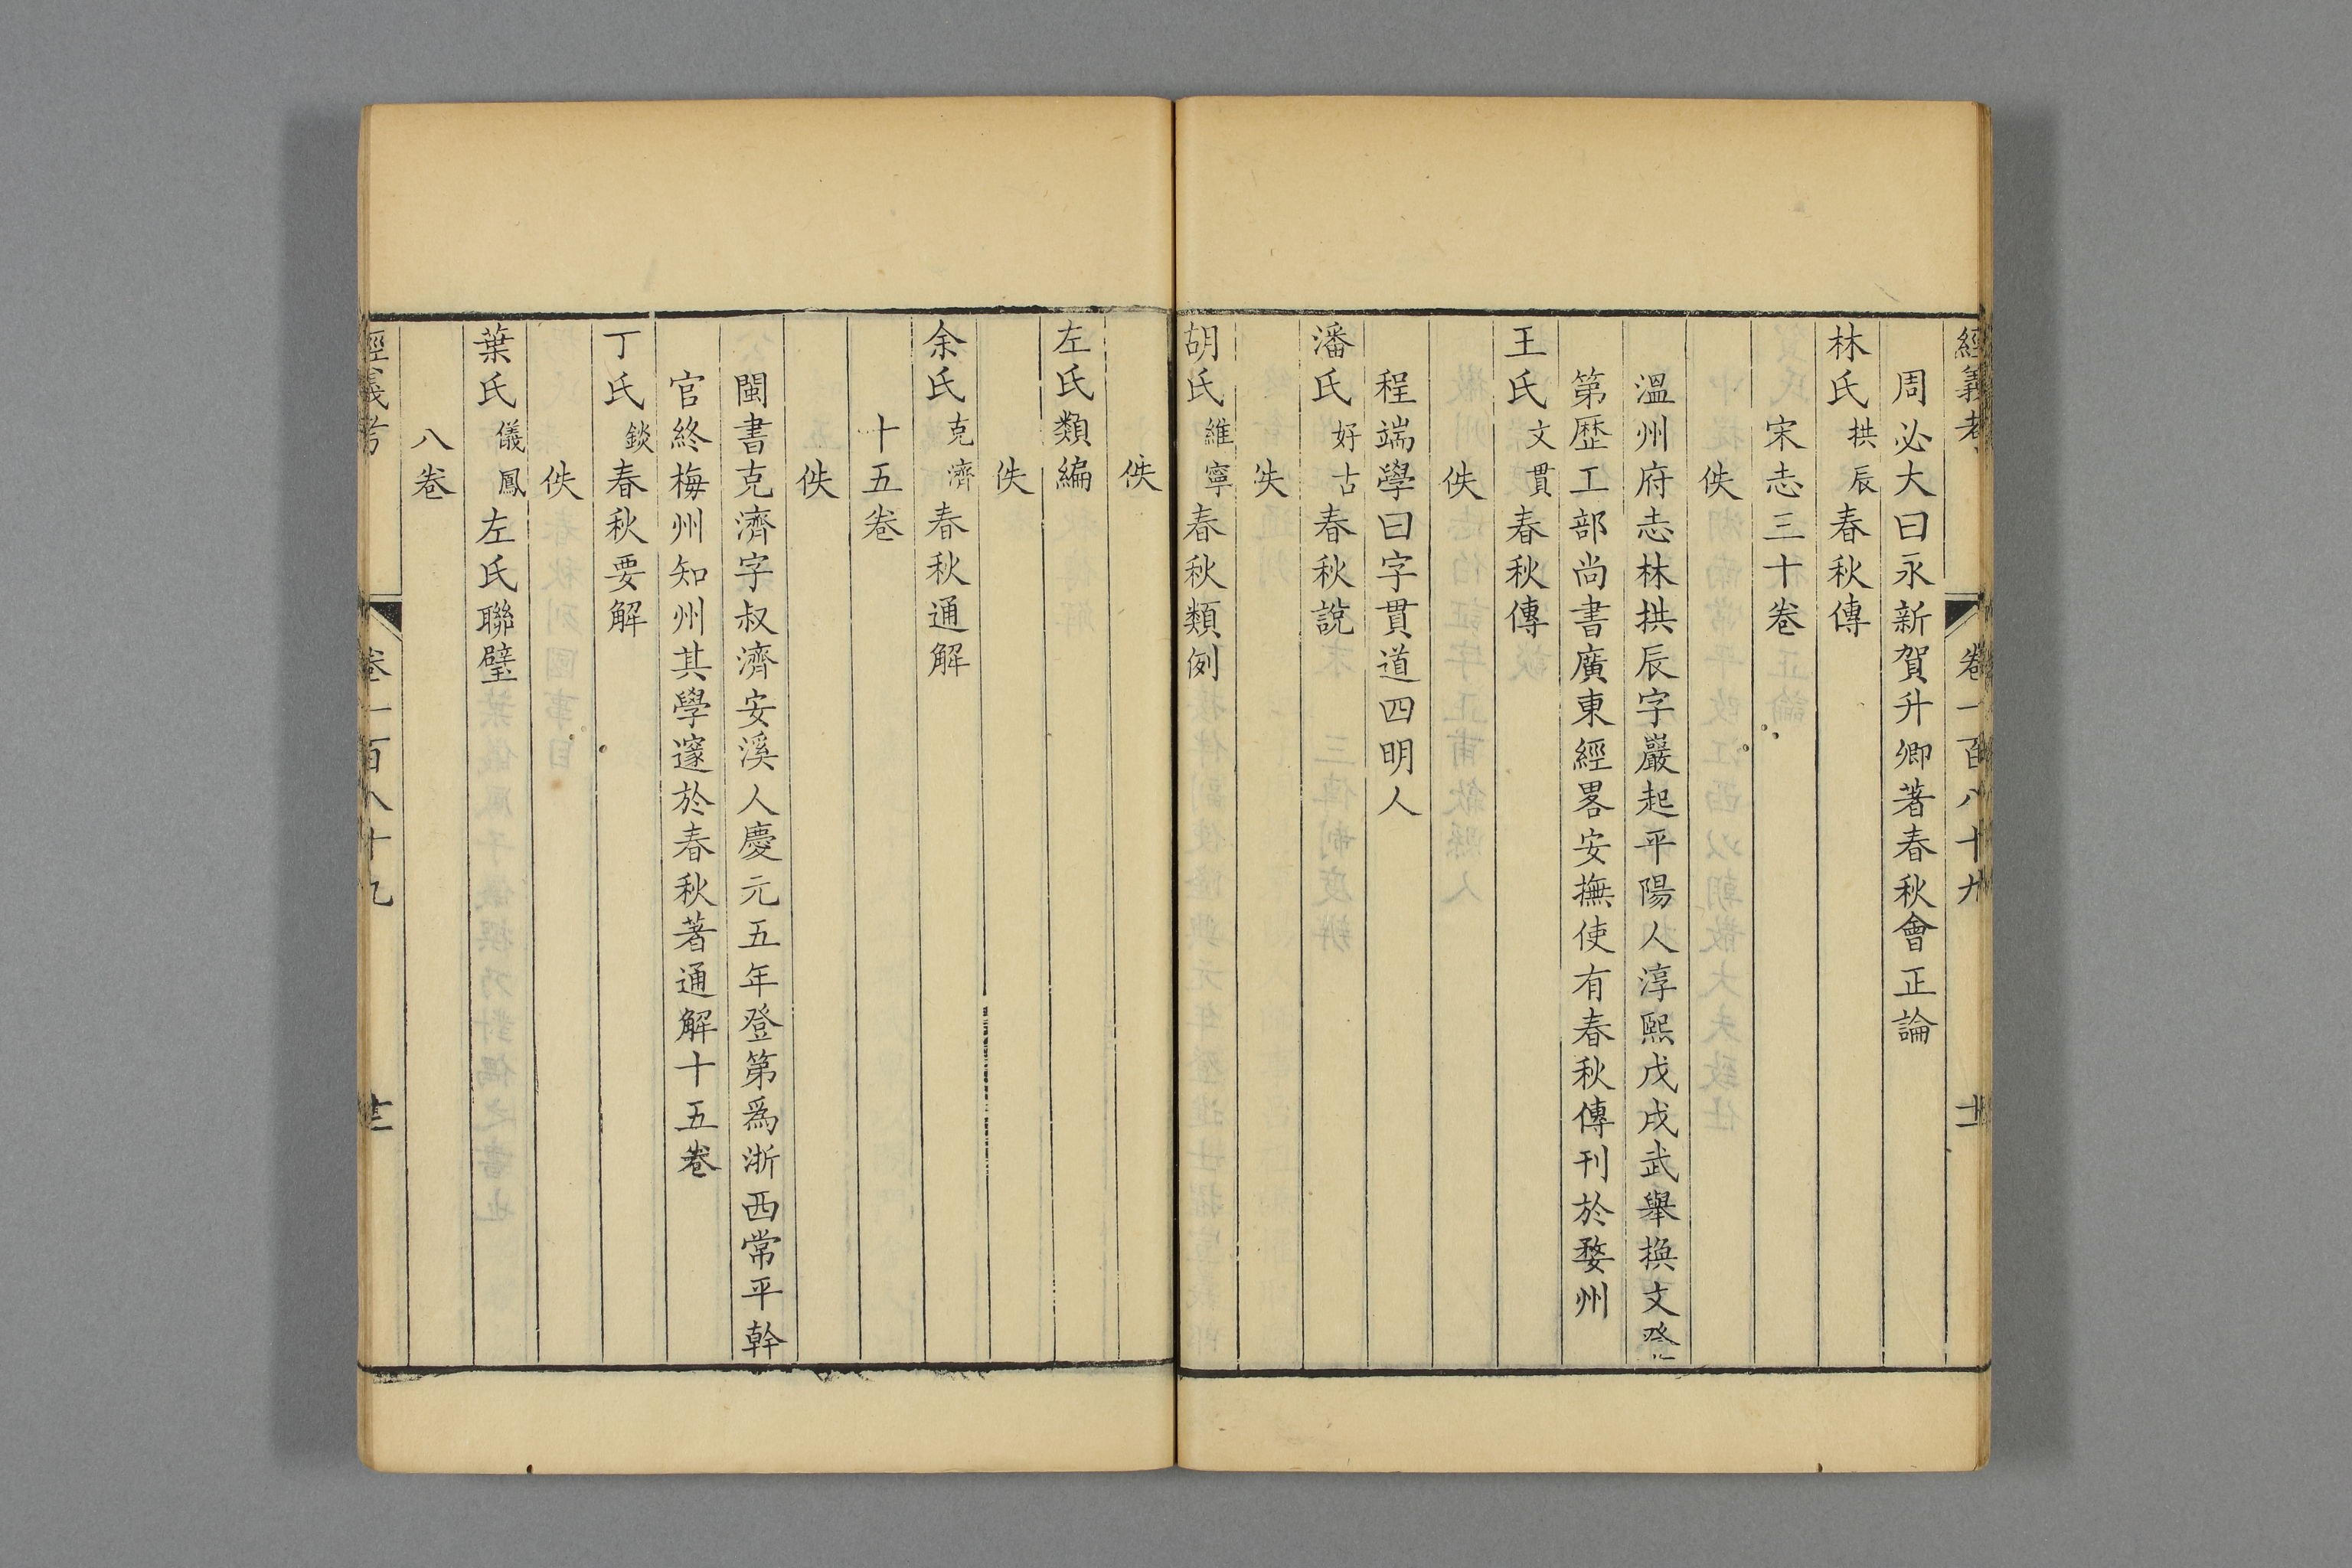 經義考 卷一百八十九
周必大曰永新賀升卿著春秋會正論
林氏拱辰春秋傳
宋志三十卷
佚
溫州府志林拱辰字巖起平陽人淳熙戊戌武舉換文登
第歷工部尚書廣東經畧安撫使有春秋傳刊於婺州
王氏文貫春秋傳
佚
程端學曰字貫道四明人
潘氏好古春秋說
佚
胡氏維寧春秋類例
佚
左氏類編
佚
余氏克濟春秋通解
十五卷
佚
閩書克濟字叔濟安溪人慶元五年登第爲浙西常平幹
官終梅州知州其學邃於春秋著通解十五卷
丁氏錟春秋要解
佚
葉氏儀鳳左氏聯璧
八卷
經義考 卷一百八十九